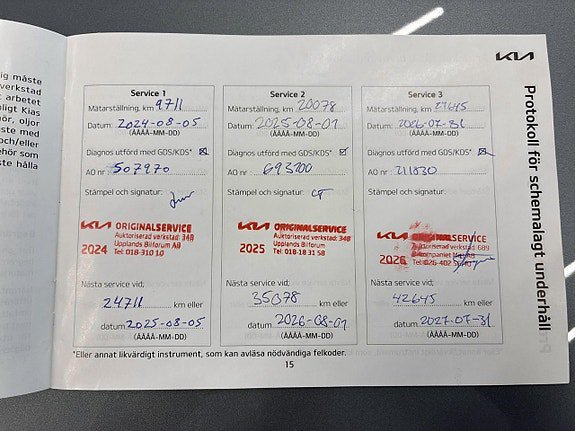 ig måste
verkstad
t arbetet
nligt Kias
ör, oljor
åste med
och/eller
ehör som
ste hålla
KIA
Protokoll för schemalagt underhåll
Service 1
Mätarställning, km 9711
Datum: 2024-08-05
(ÅÅÅÅ-MM-DD)
Diagnos utförd med GDS/KDS*
AO nr: 507970
Stämpel och signatur:
KIA ORIGINALSERVICE
Auktoriserad verkstad: 348
2024 Upplands Bilforum AB
Tel: 018-310 10
Nästa service vid;
24711 km eller
datum 2025-08-05
(ÅÅÅÅ-MM-DD)
Service 2
Mätarställning, km 20078
Datum: 2025-08-01
(ÅÅÅÅ-MM-DD)
Diagnos utförd med GDS/KDS*
AO nr: 693200
Stämpel och signatur:
KIA ORIGINALSERVICE
Auktoriserad verkstad: 348
2025 Upplands Bilforum
Tel: 018-18 31 58
Nästa service vid;
35078 km eller
datum 2026-08-01
(ÅÅÅÅ-MM-DD)
Service 3
Mätarställning, km 27645
Datum: 2026-07-31
(ÅÅÅÅ-MM-DD)
Diagnos utförd med GDS/KDS*
AO nr: 211830
Stämpel och signatur:
KIA ORIGINALSERVICE
Auktoriserad verkstad: 689
2026
Tel: 026-402
Nästa service vid;
42645 km eller
datum 2027-07-31
(ÅÅÅÅ-MM-DD)
*Eller annat likvärdigt instrument, som kan avläsa nödvändiga felkoder.
15